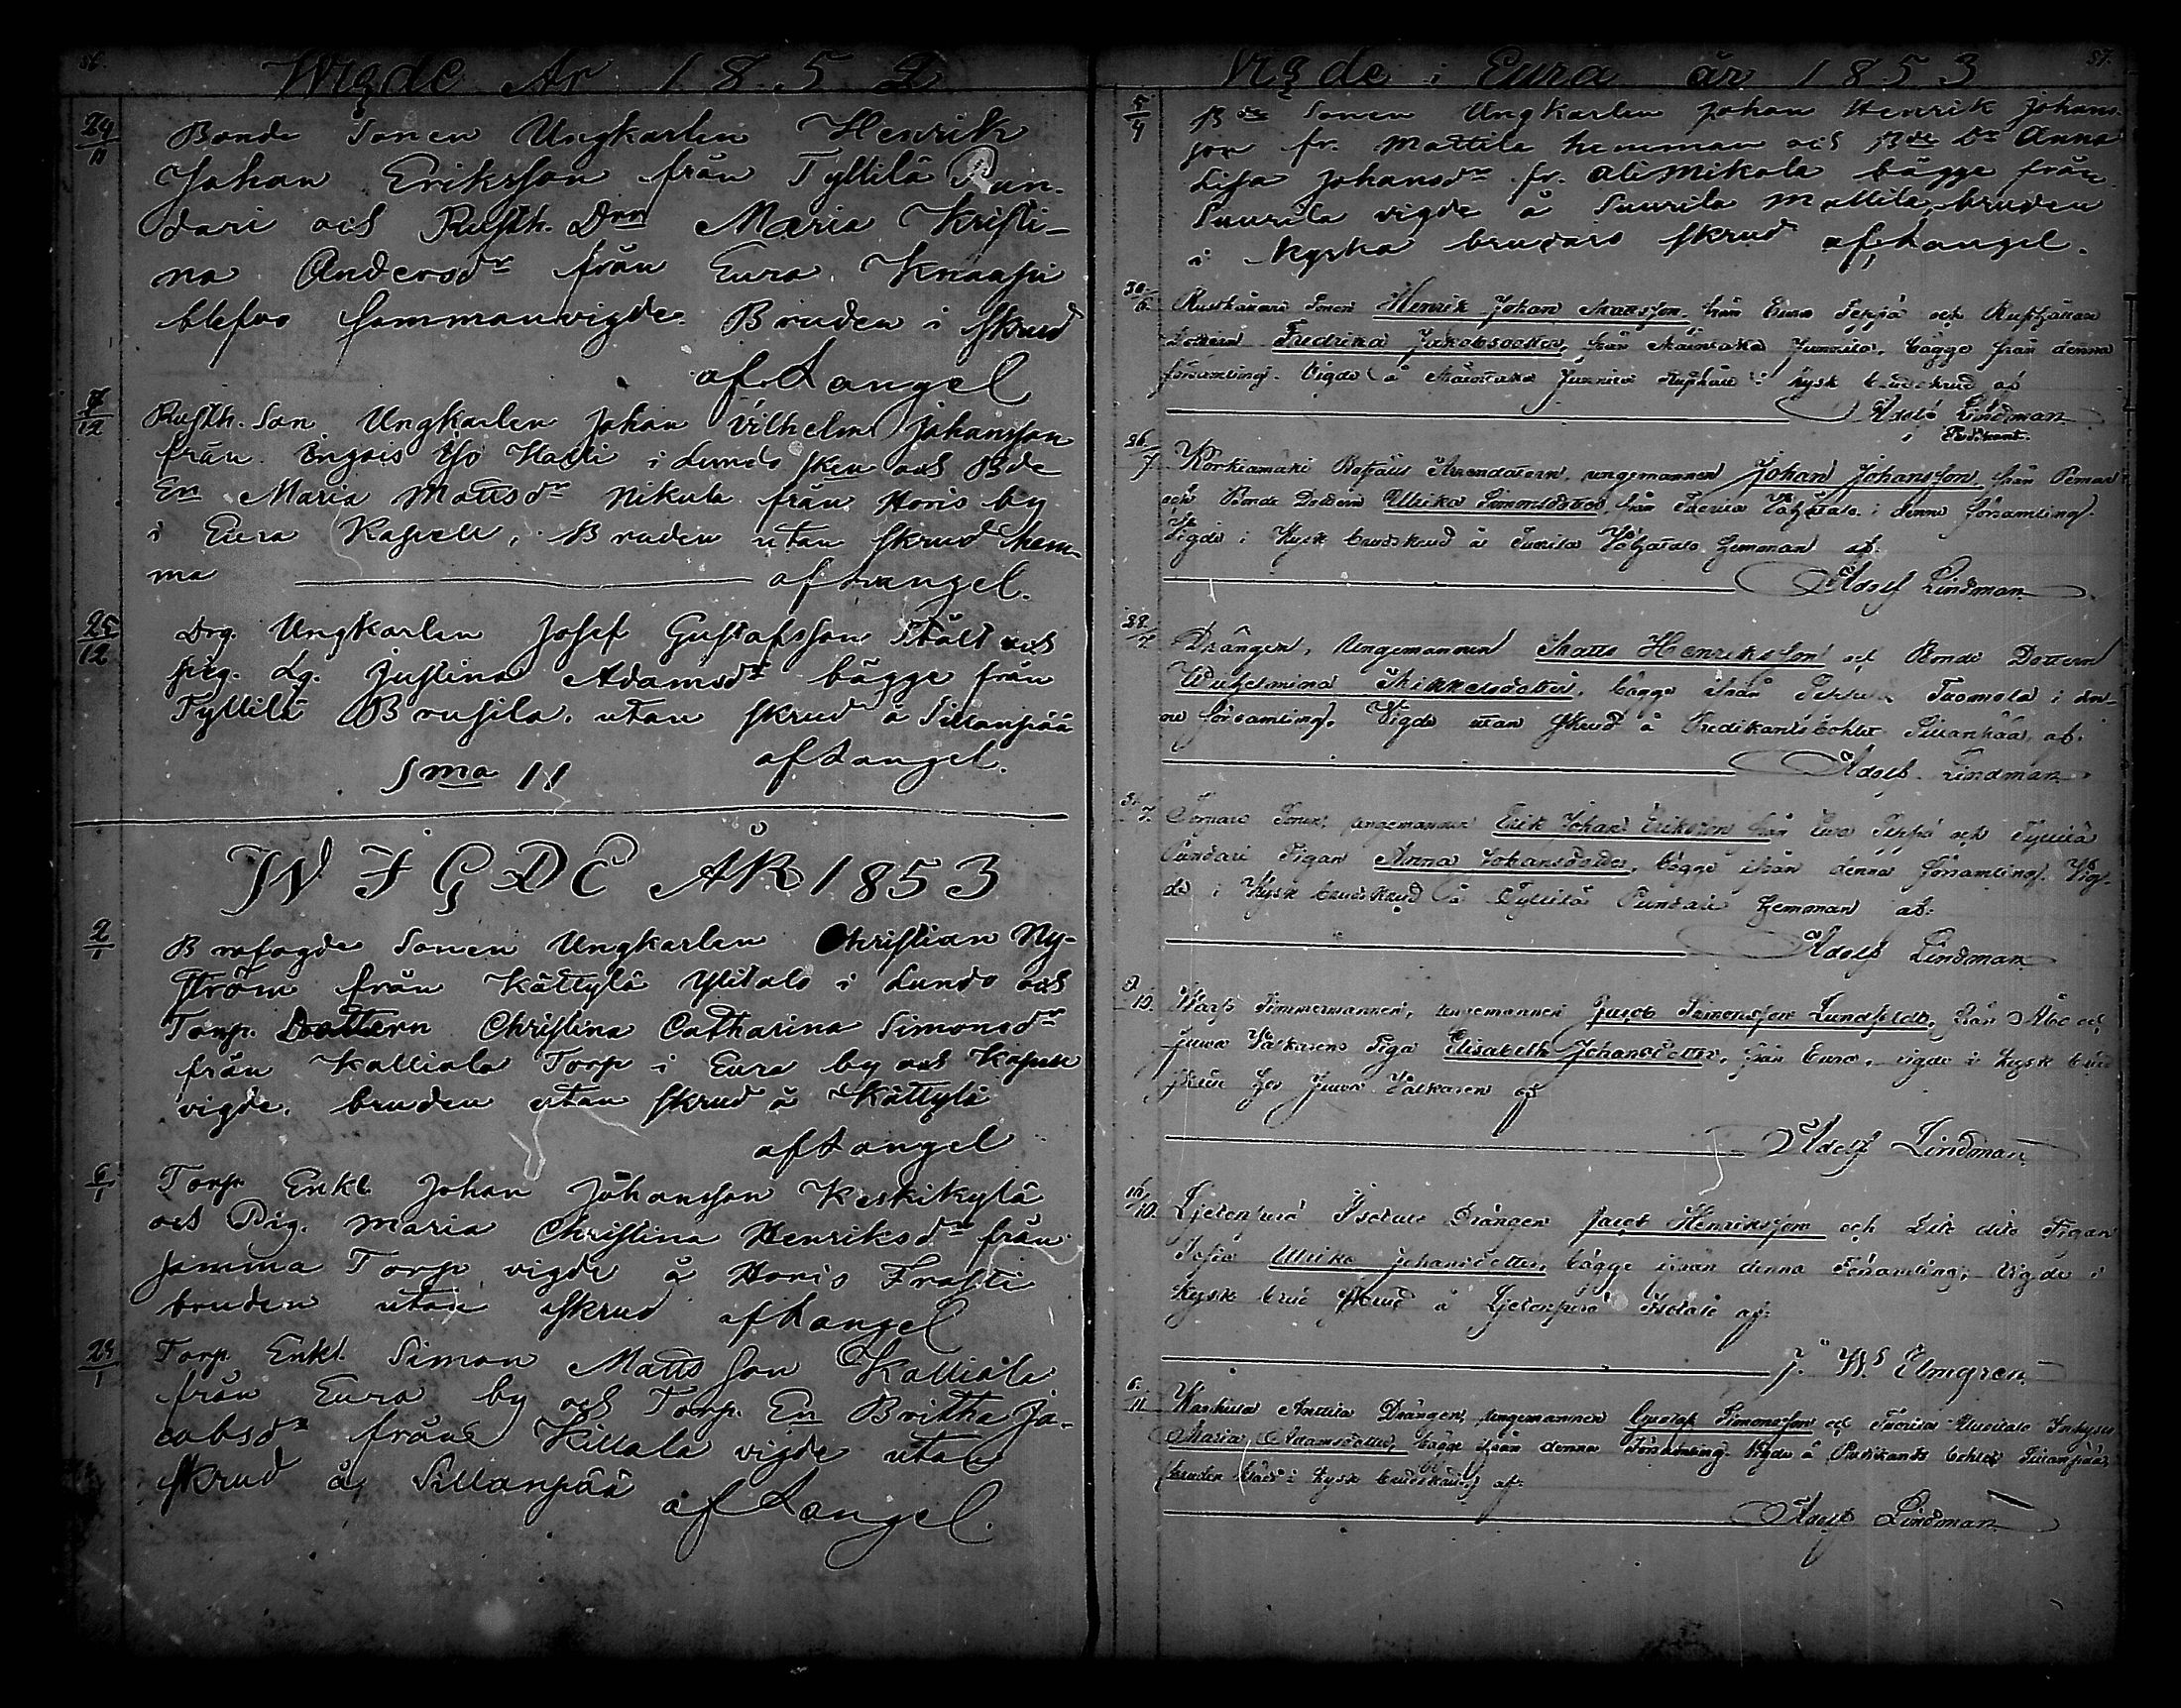 86.
Wigde År 1852
24/11 Bonde Sonen Ungkarlen Henrik
Johan Eriksson från Tyllilä Pun-
dari och Rusth. Drn Maria Kristi-
na Andersdr från Eura Knaapi
blefvo sammanvigde. Bruden i skrud
af Langel
/12 Rusth. Son Ungkarlen Johan Vilhelm Johansson
från Iso Haali i Lundo sken och Bde
En Maria Mattsdr Nikula från Horis by
i Eura Kapell, Bruden utan skrud hem-
ma af Langel.
25/12 Drg. Ungkarlen Josef Gustafsson Stålt och
pig. Lg. Justina Adamsdr bägge från
Tyllilä Brusila. utan skrud å Sillanpää
af Langel.
Sma 11
WIGDE ÅR 1853
2/1 Brofogde Sonen Ungkarlen Christian Ny-
ström från Kättylä Ylitalo i Lundo och
Torp. Dottern Christina Catharina Simonsdr
från Kalliala Torp i Eura by och Kapell
vigde. bruden utan skrud å Kättylä
af Langel
6/1 Torp Enkl. Johan Johansson Keskikylä
och Pig. Maria Christina Henriksdr från
samma Torp vigde å Horis Frasti
bruden utan skrud af Langel
29/1 Torp. Enkl. Simon Mattsson Kalliala
från Eura by och Torp. En Britha Ja-
cobsdr från Killala vigde utan
skrud å Sillanpää af Langel.
87.
Vigde i Eura år 1853
5/4 Bde Sonen Ungkarlen Johan Henrik Johans-
son fr. Mattila hemman och Bde Dr Anna
Lisa Johansdr fr. Alimikola bägge från
Suurila vigde å Suurila Mattila, bruden
i kyska brudars skrud af Langel.
30/6. Rusthållare Sonen Henrik Johan Mattsson, från Eura Seppä och Rusthållare
Dottern Fredrika Jakobsdotter, från Junnila, bägge från denna
församling. Vigde å Junnila Rusthåll i kysk brudskrud af
Adolf Lindman
Predikant.
26/7. Korkiamäki Arrendatorn, ungemannen Johan Johansson, från Pemar
och Bonde Dottern Ullrika Simonsdotter från i denna församling.
Vigde i Kysk brudskrud å hemman af.
Adolf Lindman
28/7. Drängen, Ungemannen Matts Henriksson och Bonde Dottern
Wilhelmina Mikkelsdotter, bägge ifrån Tuomola i den-
na församling. Vigde utan skrud å Predikantsbohlet Sillanpää, af.
Adolf Lindman
31/7. Torpare Sonen, ungemannen Erik Johan Eriksson från Eura Seppä och Tyllilä
Pundari Pigan Anna Johansdotter, bägge ifrån denna församling. Vig-
de i Kysk brudskrud å Tyllilä Pundari hemman af.
Adolf Lindman
9/10. Timmermannen, ungemannen Jacob Simonsson Lundfeldt, från Åbo och
Piga Elisabeth Johansdotter, från Eura, vigde i kysk brud
skrud hos af
Adolf Lindman
16/10. Isotalo Drängen Jacob Henriksson och dito Pigan
Sofia Ulrika Johansdotter, bägge ifrån denna Församling; Vigde i
kysk brud skrud å Isotalo af.
J. W. Elmgren
6/11 Anttila Drängen, ungemannen Gustaf Simonsson och Inhyses
Maria Adamsdotter, bägge ifrån denna Församling. Vigde å Predikants bohlet Sillanpää,
(bruden klädd i kysk brudskrud) af.
Adolf Lindman